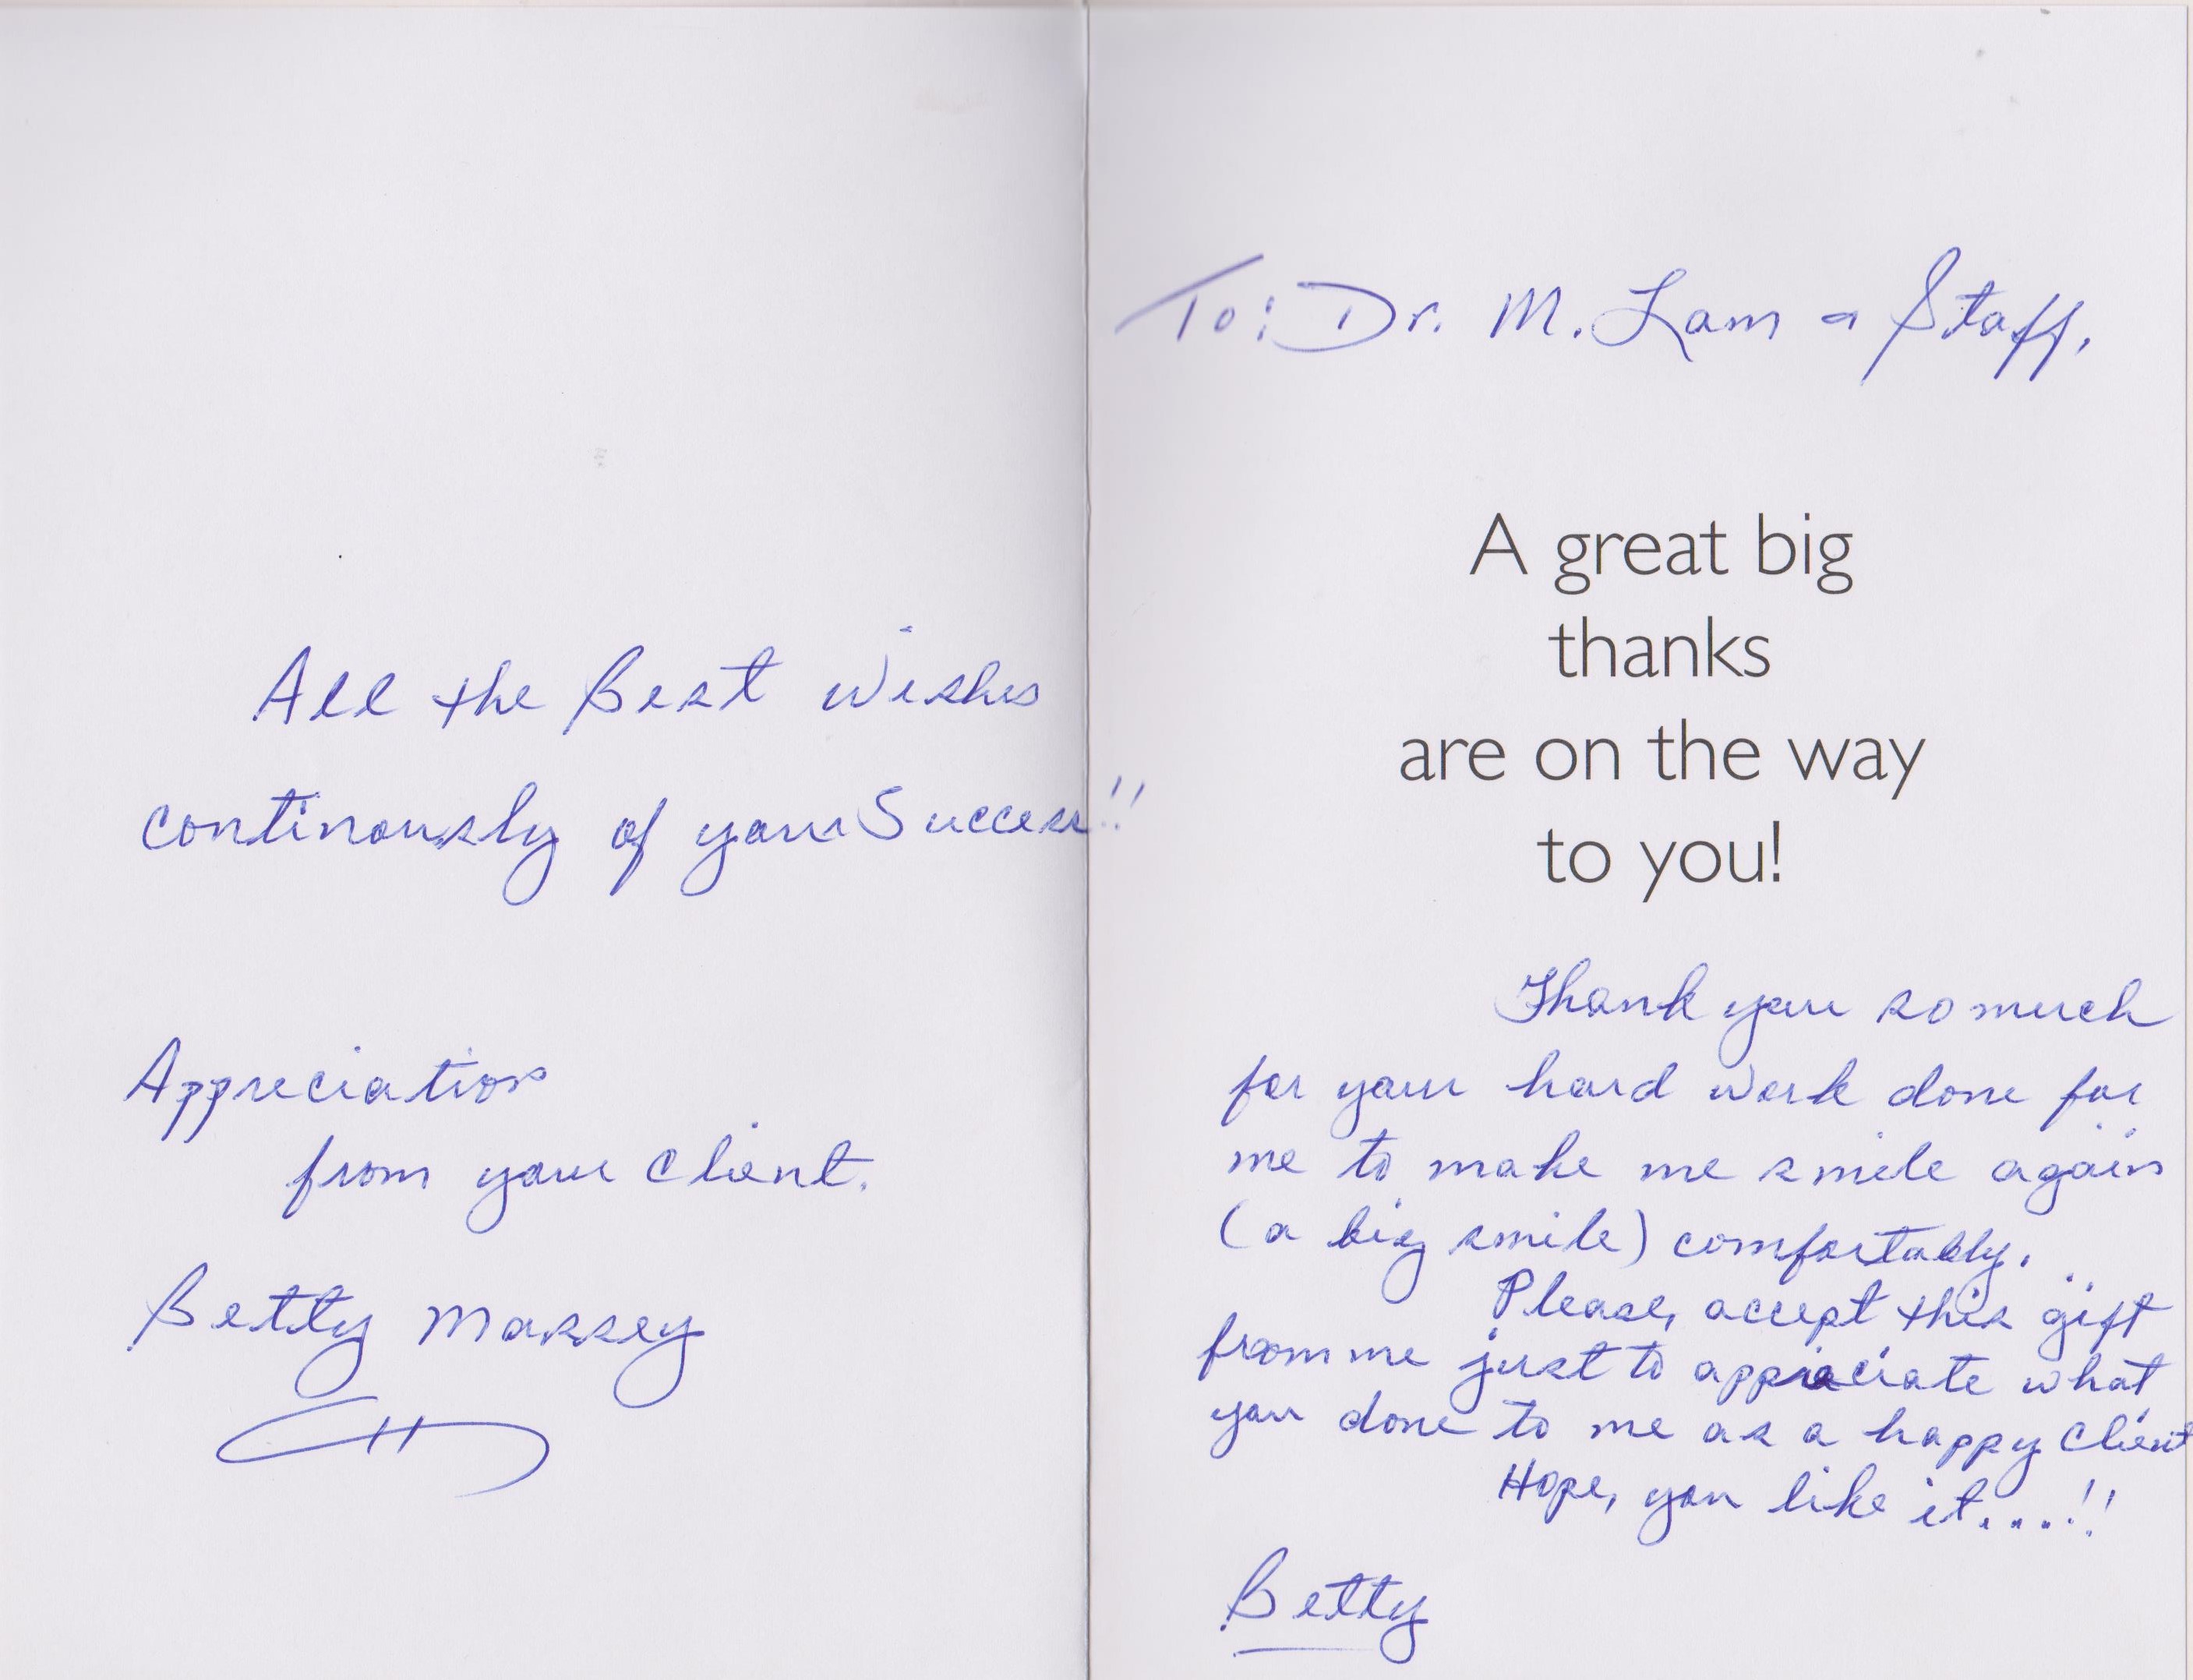 All the Best Wishes
continously of your Success!!
Appreciation
from your Client.
Betty Massey
To: Dr. M. Lam & Staff,
A great big
thanks
are on the way
to you!
Thank you so much
for your hard work done for
me to make me smile again
(a big smile) comfortably.
Please, accept this gift
from me just to appreciate what
you done to me as a happy Client
Hope, you like it....!!
Betty